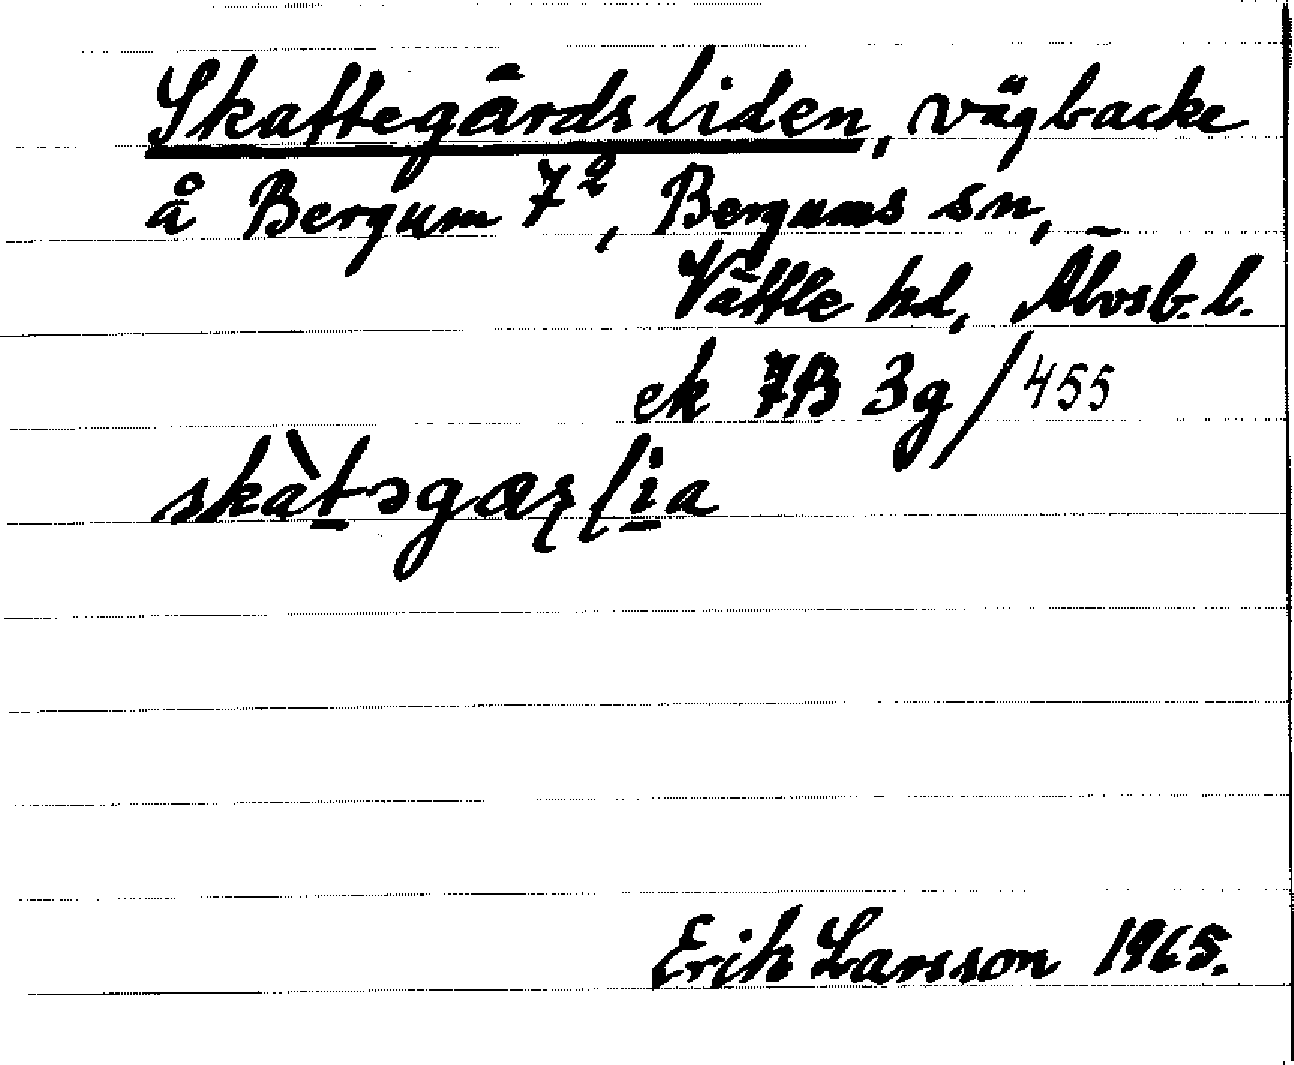 Skattegårdsliden, vägbacke
å Bergum 7², Bergums sn,
Vättle hd, Älvsb. l.
ek 7B 3g/455
skàt̠ɔgæʂli̠a
Erik Larsson 1965.